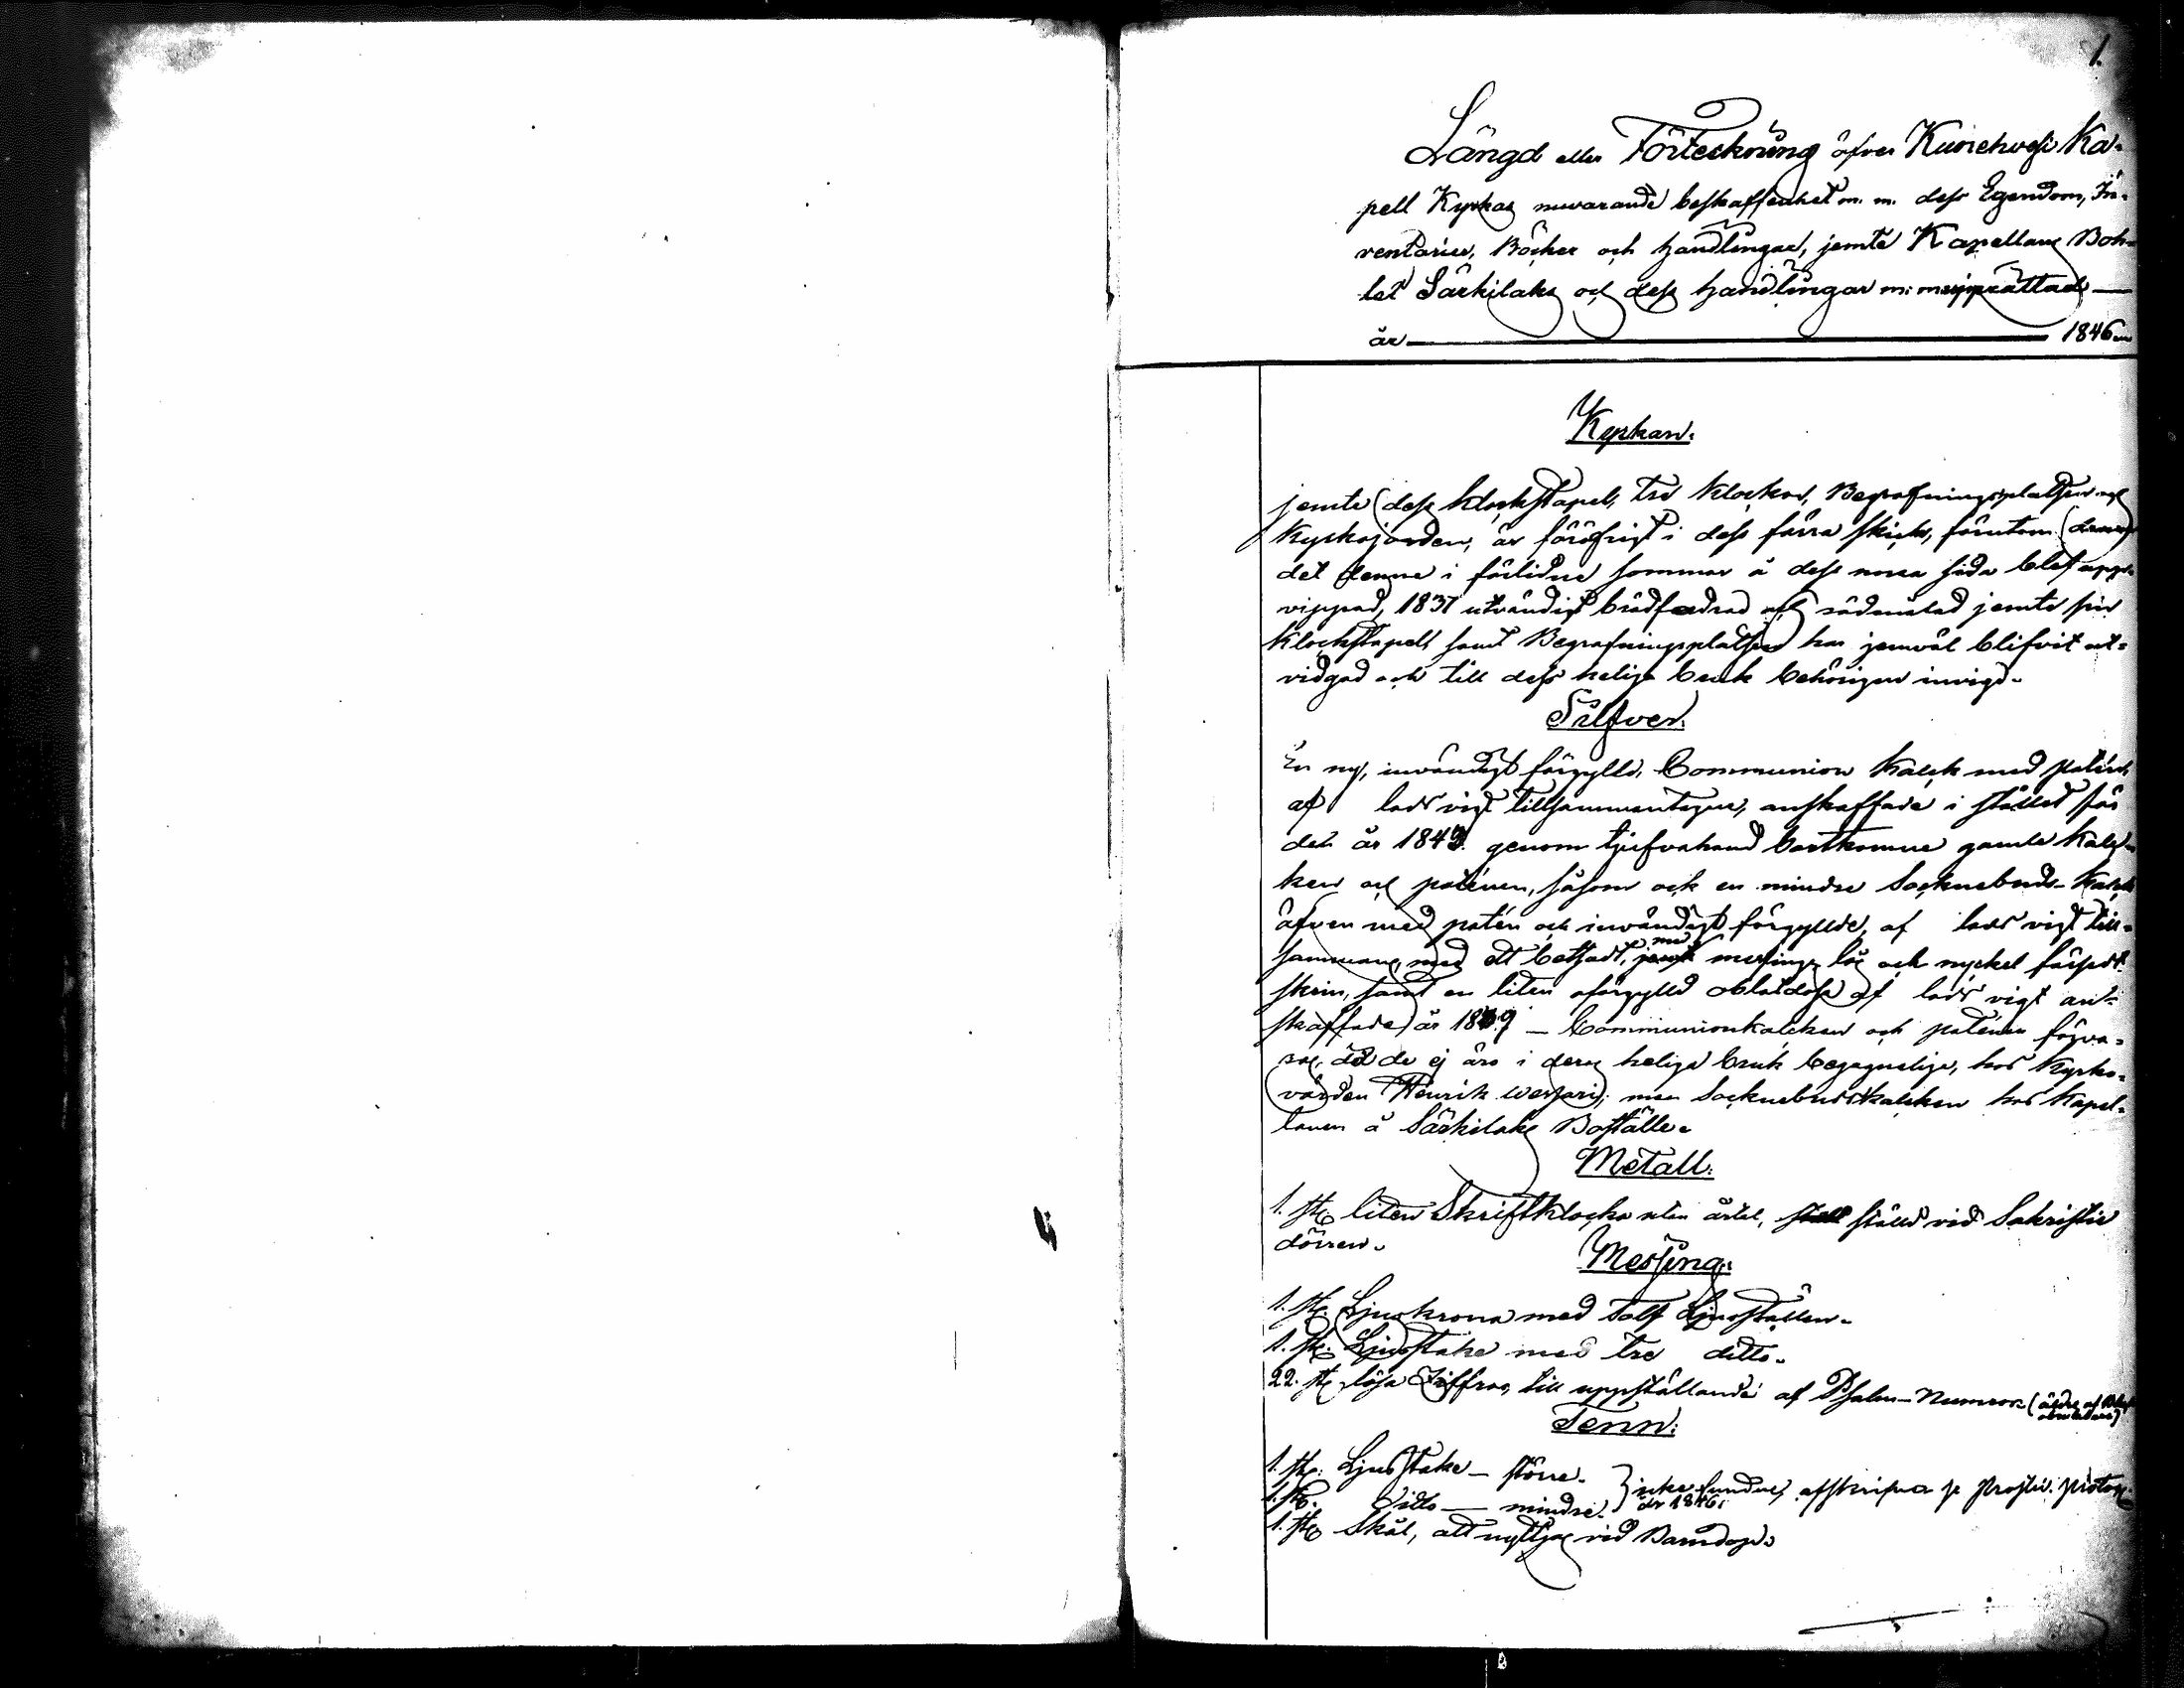 1.
Längd eller Förteckning öfver Kuorehvesi Ka-
pell Kyrkas nuvarande beskaffenhet m. m. dess Egendom, In-
ventarier, Böcker och handlingar, jemte Kapellans Bohl-
let Särkilaks och dess handlingar m: m. upprättad —
år — 1846.
Kyrkan.
jemte dess klockstapel, tre klockor, Begrafningsplatsen och
kyrkojorden, är föröfrigt i dess förra skick, förutom
det denne i förlidne sommar å dess norra sida blef upp-
vippad, 1837 utvändigt brädfodrad och rödmålad jemte sin
klockstapel, samt Begrafningsplatsen har jemväl blifvit ut-
vidgad och till dess heliga bruk behörigen invigd.
Silfver.
En ny, invändigt förgylld, Communion kalck med patén,
af lods vigt tillsammantagne, anskaffade i stället för
det år 1843. genom tjufvahand bortkomne gamla kalc-
ken och paténen, såsom ock en mindre Socknebuds-kalck
äfven med patén och invändigt förgyllde, af lods vigt till-
sammans, med ett betsadt, med messings lås och nyckel försedt
skrin, samt en liten oförgylld oblatdosa af lods vigt an-
skaffade år 1839 — Communionkalcken och paténen förva-
ras, då de ej äro i deras heliga bruk begagnelige, hos Kyrko-
värden Henrik Wessari; men Socknebudskalcken hos Kapel-
lanen å Särkilaks Boställe.
Metall.
1. st. liten Skriftklocka utan årtal, ställd vid Sakristie
dörren.
Messing.
1. st. Ljuskrona med tolf Ljusställen.
1. st. Ljusstake med tre ditto.
22. st. lösa Ziffror, till uppställande af Psalm-Numror. (äldre af
Tenn.
1. st. Ljusstake — större. } icke fundne, afskrifna
1. st. Ditto — mindre. } år 1846.
1. st. Skål, att nyttjas vid Barndop.